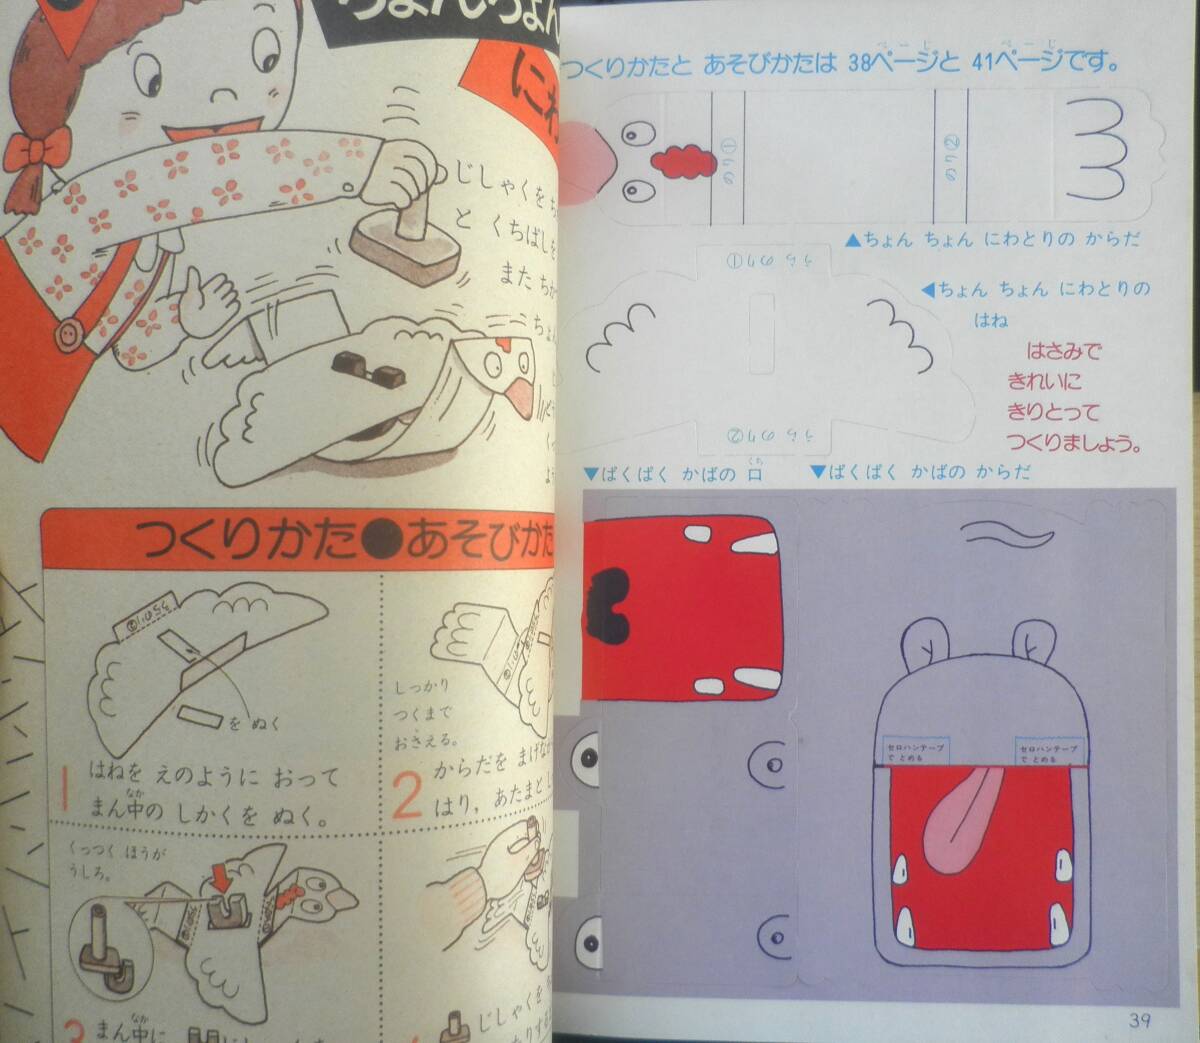 ちょんちょん
にわ
じしゃくを ち
と くちばしを
また ちか
ちょ
つくりかた●あそびかた
うらのり②
を ぬく
1
はねを えのように おって
まん中の しかくを ぬく。
なか
しっかり
つくまで
おさえる。
2
からだを まげなが
はり，あたまと し
くっつく ほうが
うしろ。
3
まん中に
なか
じしゃくを
つくりかたと あそびかたは 38ページと 41ページです。
ページ
ページ
のり①
のり②
▲ちょん ちょん にわとりの からだ
うらのり①
◀ちょん ちょん にわとりの
はね
はさみで
きれいに
きりとって
つくりましょう。
うらのり②
▼ぱくぱく かばの 口
くち
▼ぱくぱく かばの からだ
セロハンテープ
で とめる
セロハンテープ
で とめる
39